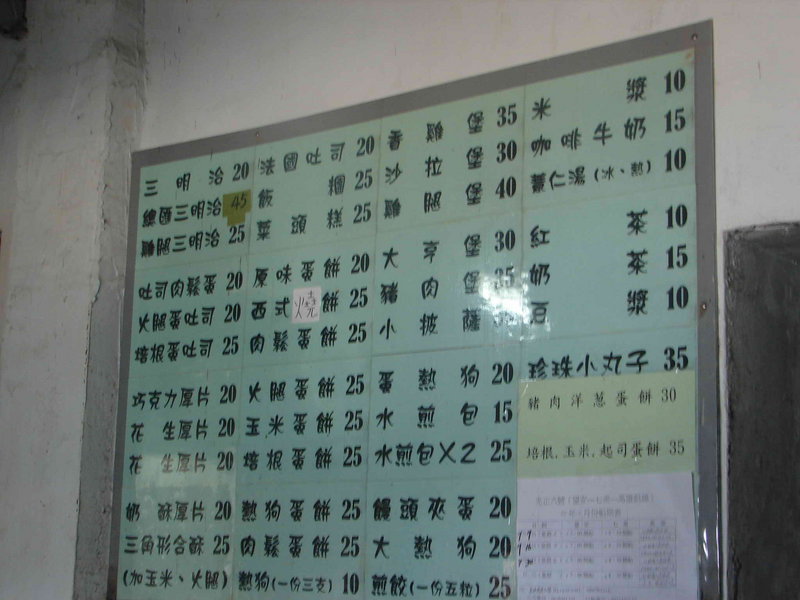 三明治 20
總匯三明治 45
雞腿三明治 25
吐司肉鬆蛋 20
火腿蛋吐司 20
培根蛋吐司 25
巧克力厚片 20
花生厚片 20
花生厚片 20
奶酥厚片 20
三角形合酥 25
(加玉米、火腿)
法國吐司 20
飯糰 25
菜頭糕 25
原味蛋餅 20
西式燒餅 25
肉鬆蛋餅 25
火腿蛋餅 25
玉米蛋餅 25
培根蛋餅 25
熱狗蛋餅 25
肉鬆蛋餅 25
熱狗(一份三支) 10
香雞堡 35
沙拉堡 30
雞腿堡 40
大亨堡 30
豬肉堡 35
小披薩
蛋熱狗 20
水煎包 15
水煎包X2 25
饅頭夾蛋 20
大熱狗 20
煎餃(一份五粒) 25
米漿 10
咖啡牛奶 15
薏仁湯(冰、熱) 10
紅茶 10
奶茶 15
豆漿 10
珍珠小丸子 35
豬肉洋蔥蛋餅 30
培根,玉米,起司蛋餅 35